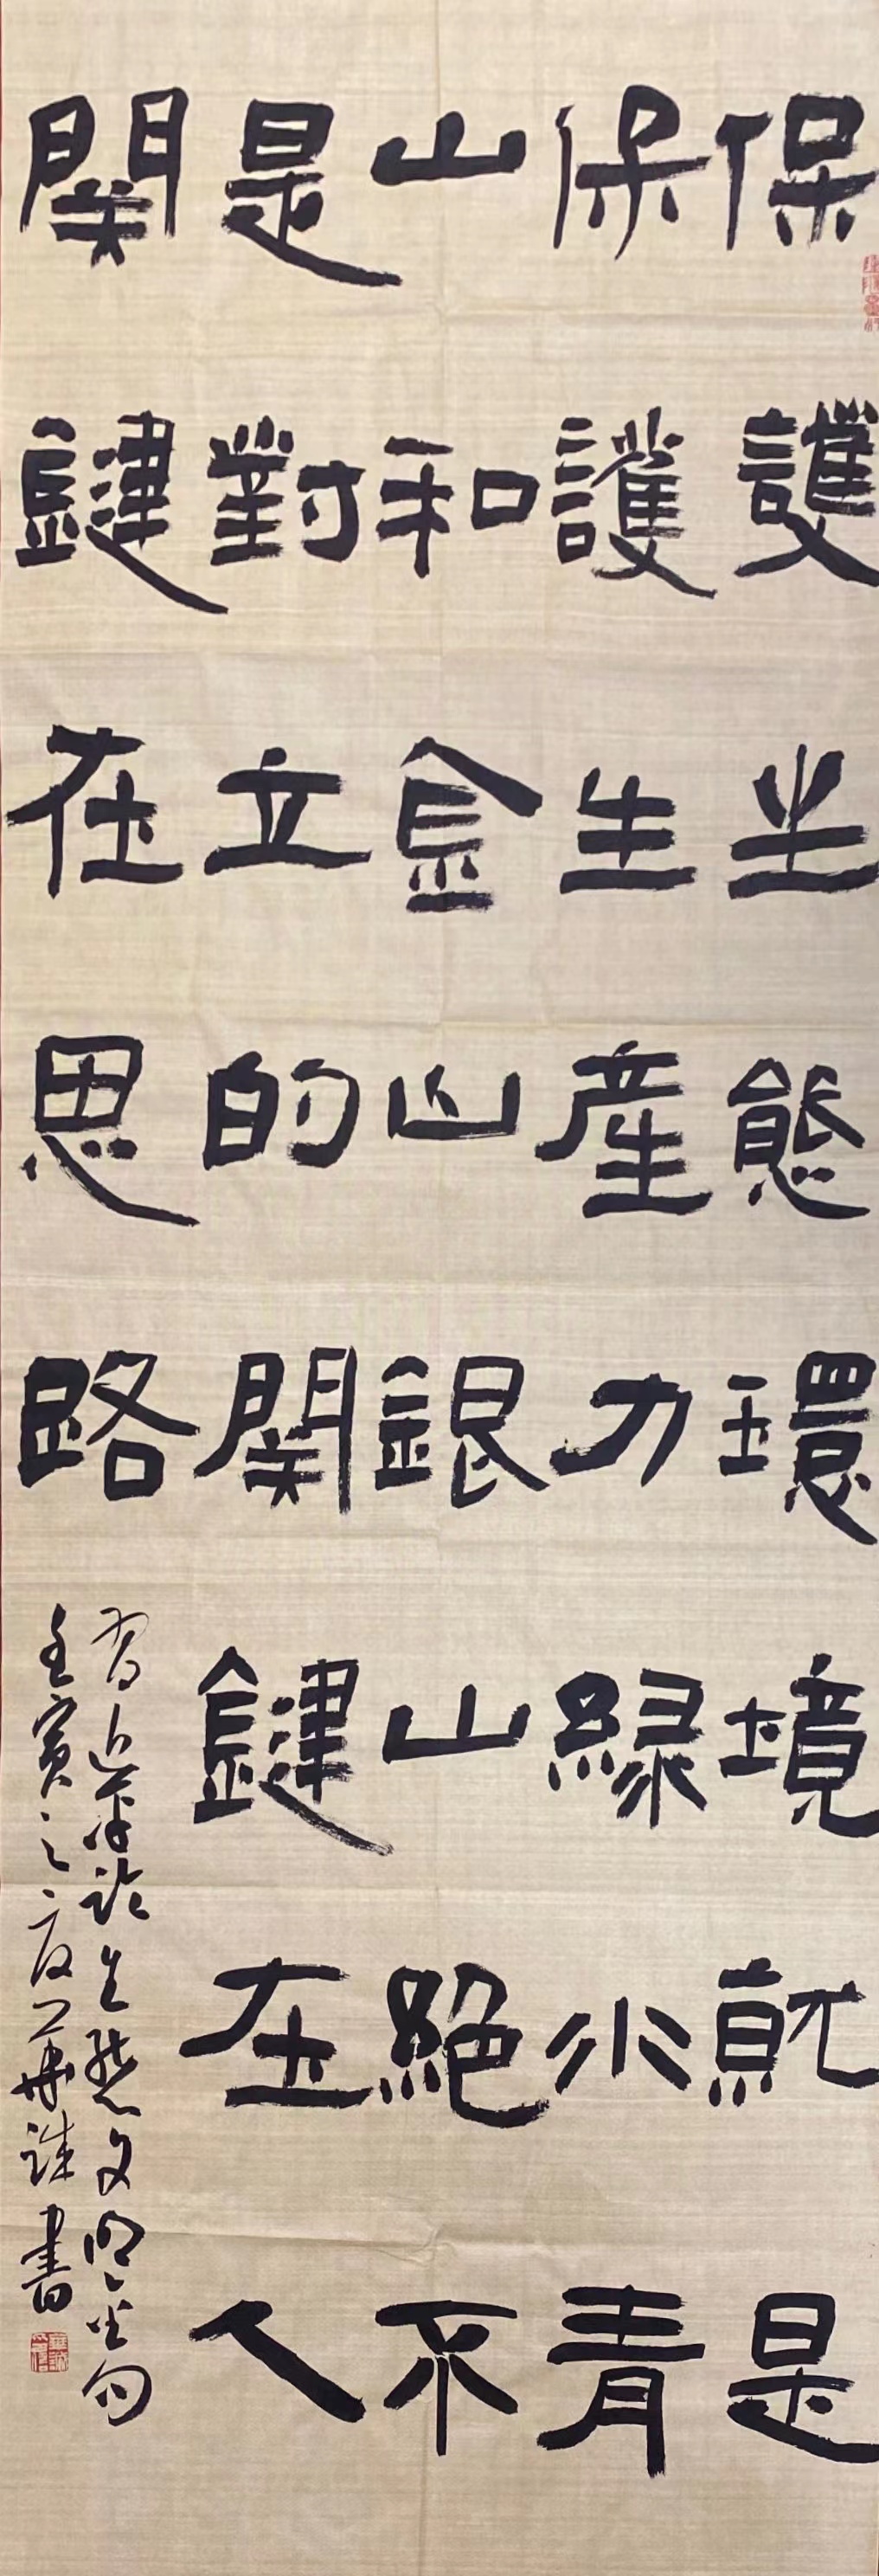 保護生態環境就是
保護生產力綠水青
山和金山銀山絕不
是對立的關鍵在人
關鍵在路思
習近平論生態文明金句
壬寅之夏華誠書